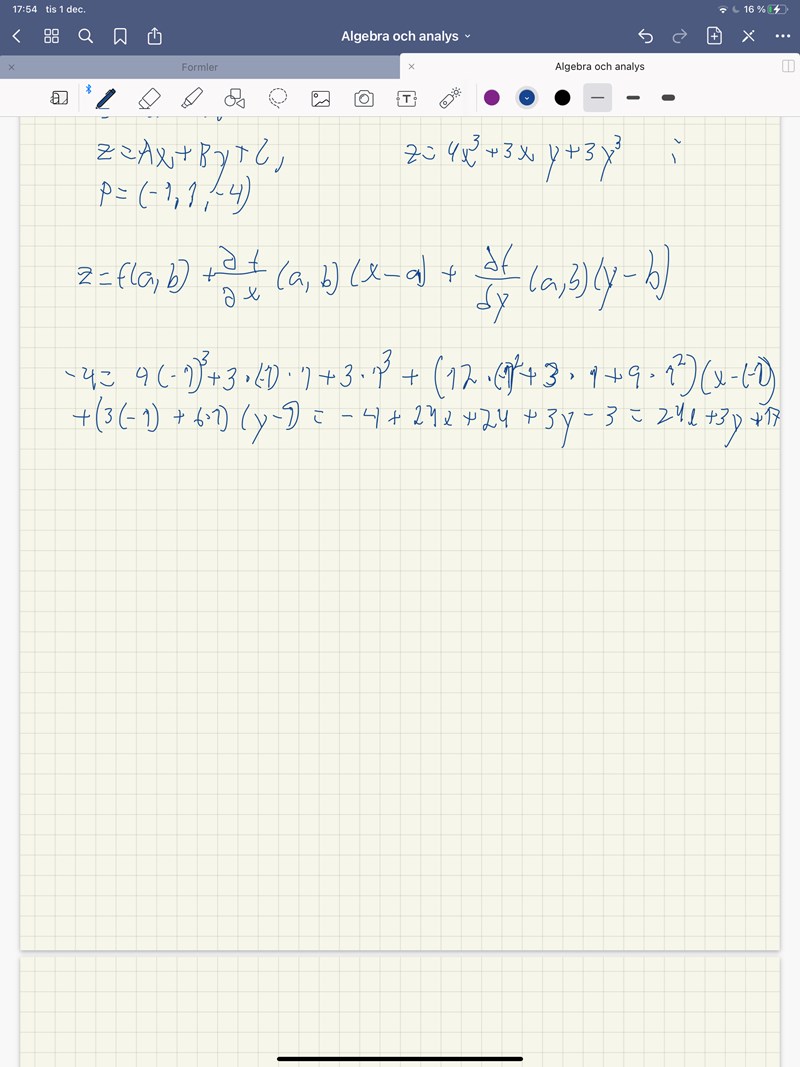 17:54 tis 1 dec.
16 %
Algebra och analys
Formler
Algebra och analys
z = Ax + By + C,
z = 4x³ + 3xy + 3y³ i
P = (-1, 1, -4)
z = f(a, b) + ∂f/∂x (a, b) (x - a) + ∂f/∂y (a, b) (y - b)
-4 = 4(-1)³ + 3·(-1)·1 + 3·1³ + (12·(-1)² + 3·1 + 9·1²)(x-(-1))
+ (3(-1) + 6·1) (y-1) = -4 + 24x + 24 + 3y - 3 = 24x + 3y + 17